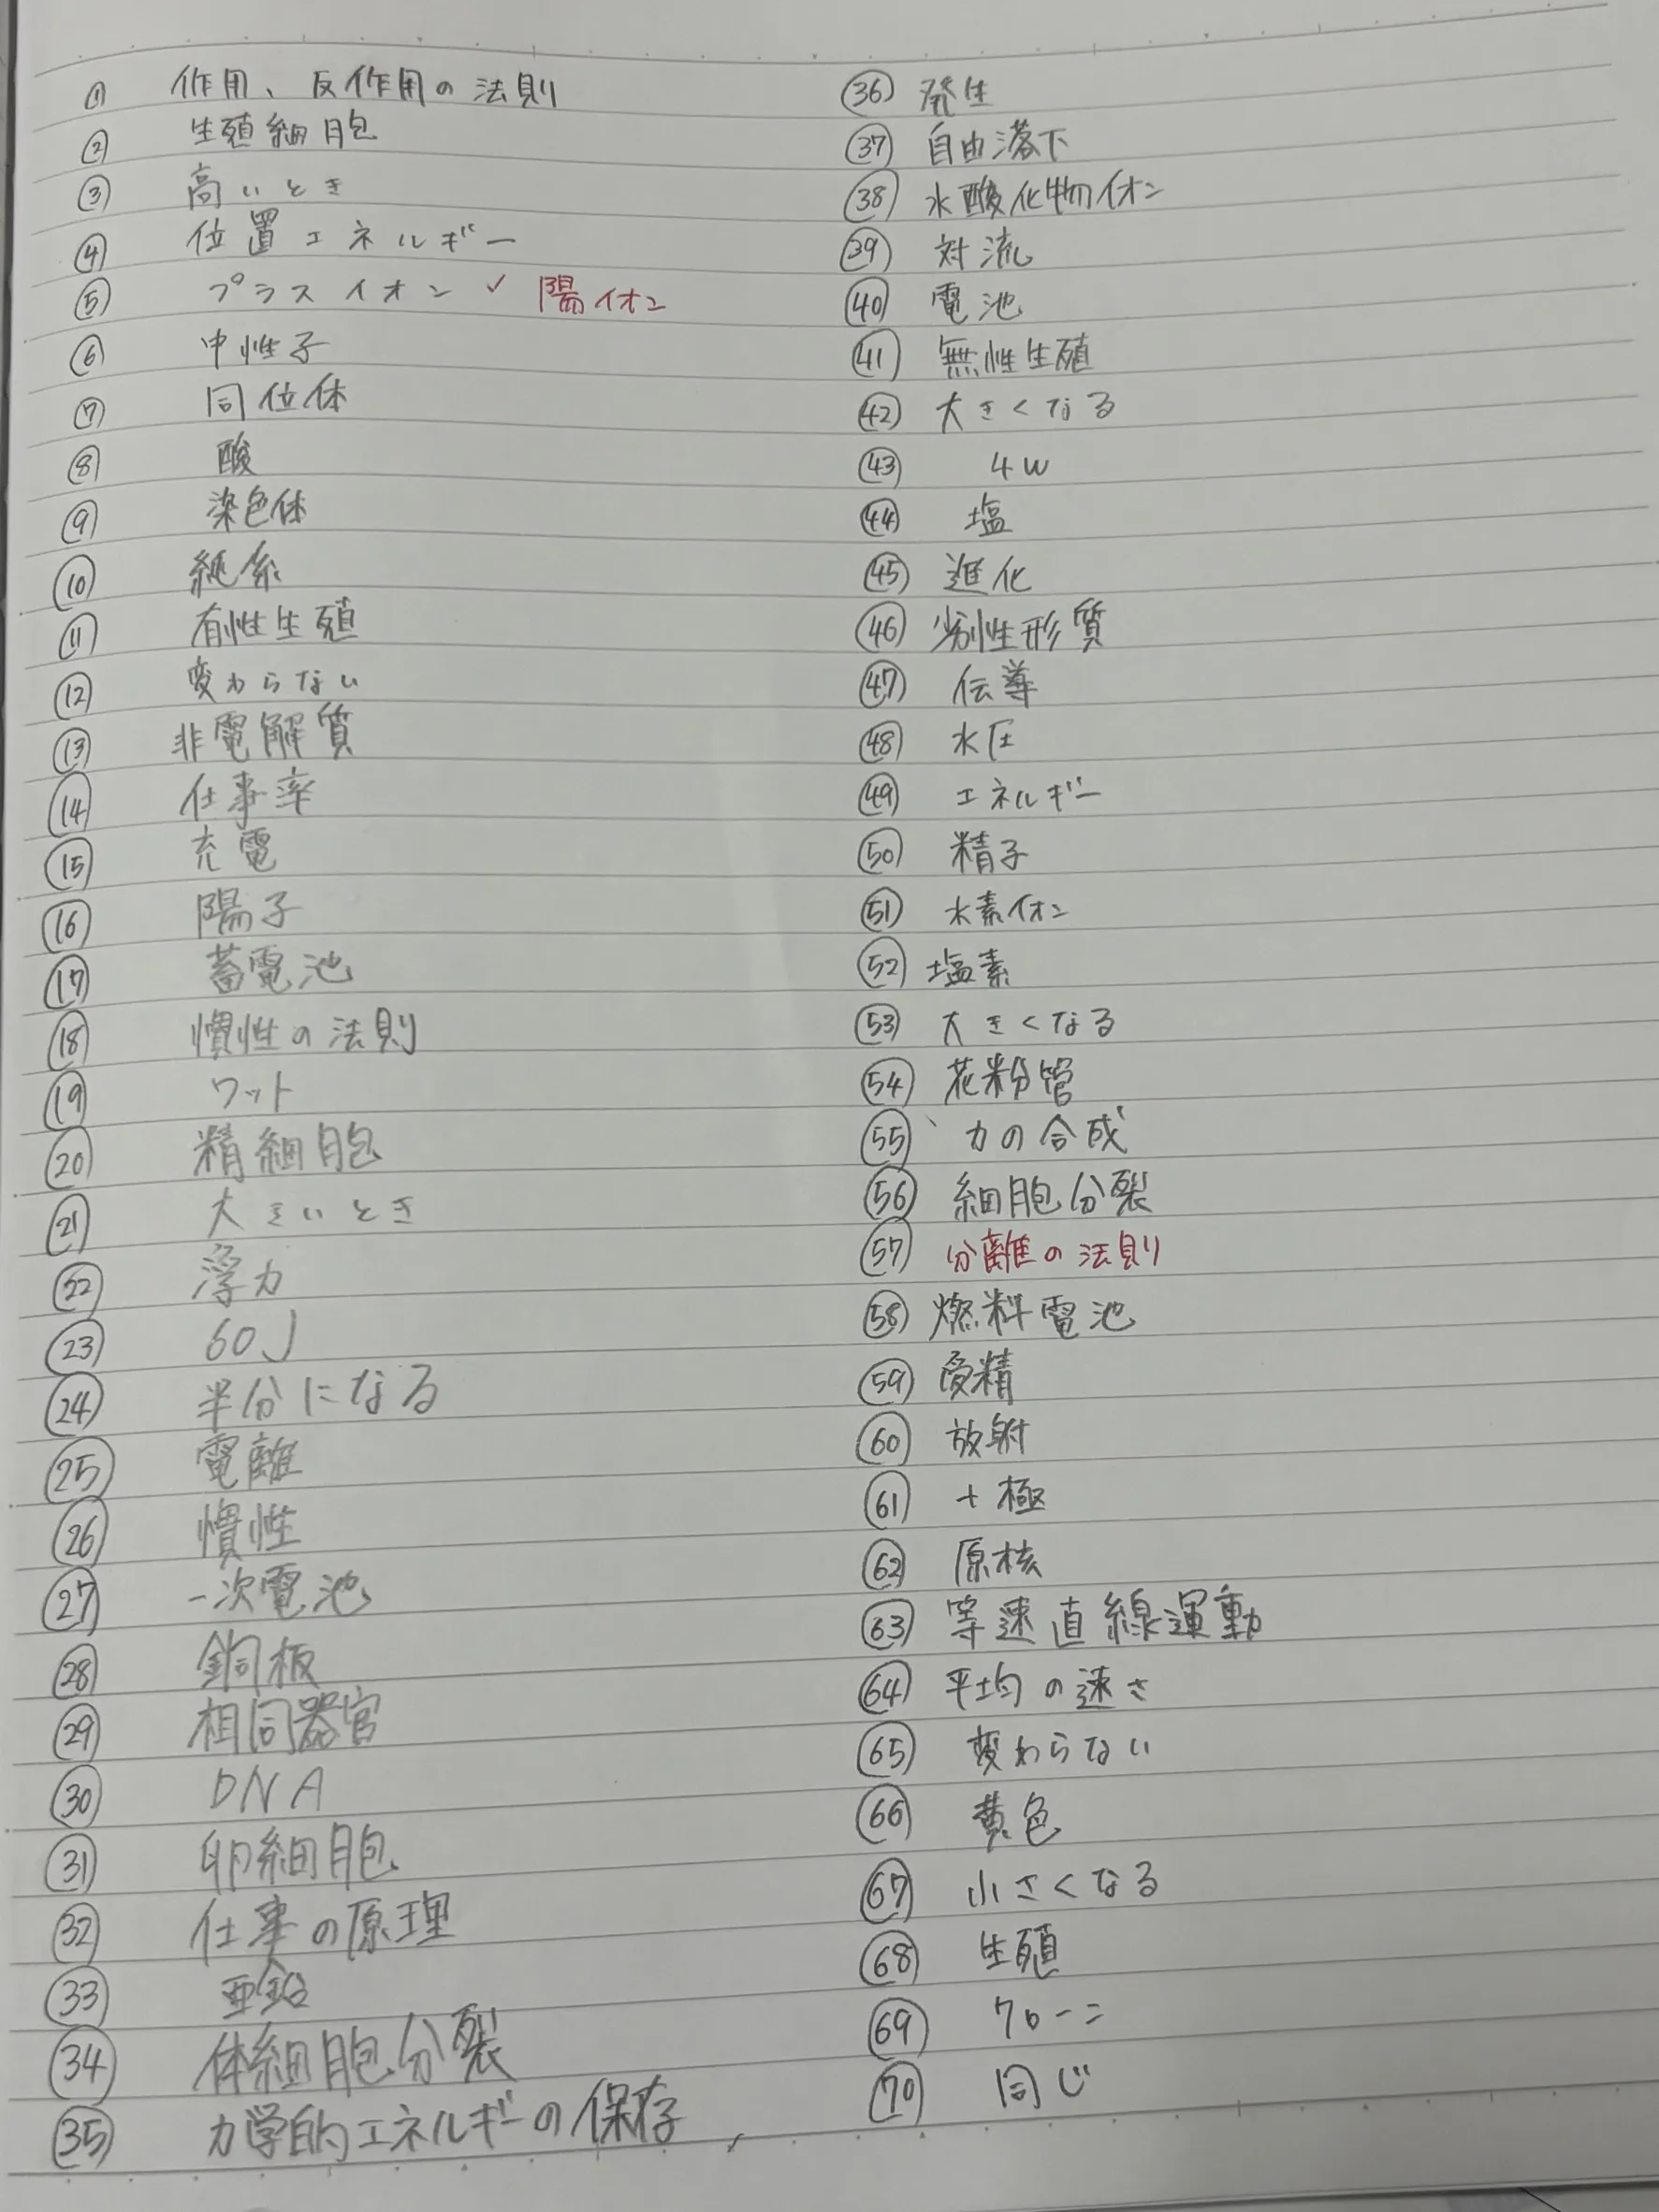 ① 作用、反作用の法則
② 生殖細胞
③ 高いとき
④ 位置エネルギー
⑤ プラスイオン ✓ 陽イオン
⑥ 中性子
⑦ 同位体
⑧ 酸
⑨ 染色体
⑩ 純系
⑪ 有性生殖
⑫ 変わらない
⑬ 非電解質
⑭ 仕事率
⑮ 充電
⑯ 陽子
⑰ 蓄電池
⑱ 慣性の法則
⑲ ワット
⑳ 精細胞
㉑ 大きいとき
㉒ 浮力
㉓ 60J
㉔ 半分になる
㉕ 電離
㉖ 慣性
㉗ 一次電池
㉘ 銅板
㉙ 相同器官
㉚ DNA
㉛ 卵細胞
㉜ 仕事の原理
㉝ 亜鉛
㉞ 体細胞分裂
㉟ 力学的エネルギーの保存
㊱ 発生
㊲ 自由落下
㊳ 水酸化物イオン
㊴ 対流
㊵ 電池
㊶ 無性生殖
㊷ 大きくなる
㊸ 4W
㊹ 塩
㊺ 進化
㊻ 劣性形質
㊼ 伝導
㊽ 水圧
㊾ エネルギー
㊿ 精子
(51) 水素イオン
(52) 塩素
(53) 大きくなる
(54) 花粉管
(55) 力の合成
(56) 細胞分裂
(57) 分離の法則
(58) 燃料電池
(59) 受精
(60) 放射
(61) +極
(62) 原核
(63) 等速直線運動
(64) 平均の速さ
(65) 変わらない
(66) 黄色
(67) 小さくなる
(68) 生殖
(69) クローン
(70) 同じ